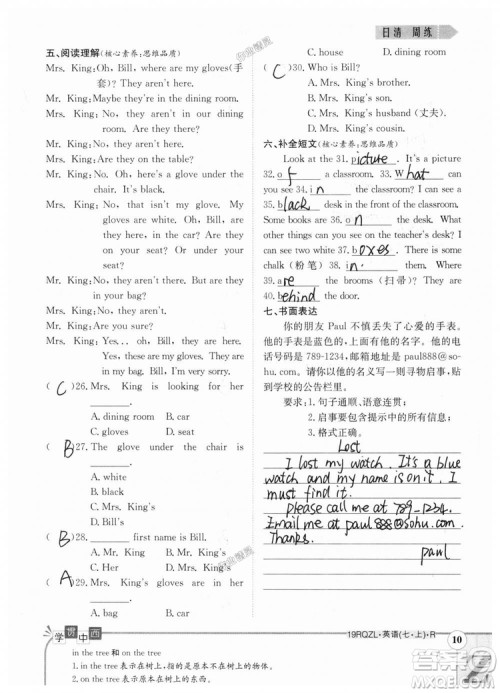 日清 周练
五、阅读理解(核心素养:思维品质)
Mrs. King: Oh, Bill, where are my gloves(手
套)? They aren't here.
Mr. King: Maybe they're in the dining room.
Mrs. King: No, they aren't in the dining
room. Are they there?
Mr. King: No, they aren't here.
Mrs. King: Are they on the table?
Mr. King: No. Oh, here's a glove under the
chair. It's black.
Mrs. King: No, that isn't my glove. My
gloves are white. Oh, Bill,
where are my gloves? Are they
on your seat? Or under your
seat?
Mr. King: No, they aren't there. But are they
in your bag?
Mrs. King: No, they aren't there, either.
Mr. King: Are you sure?
Mrs. King: Yes... oh, they are in my bag.
Here they are. Bill, I'm very sorry.
( C )26. Mrs. King is looking for her
.
A. dining room B. car
C. gloves D. seat
( B )27. The glove under the chair is
.
A. white
B. black
C. Mrs. King's
D. Mr. King's
( B )28. first name is Bill.
A. Mr. King B. Mr. King's
C. Her D. Mrs. King's
( A )29. Mrs. King's gloves are in her
.
A. bag B. car
C. house D. dining room
( C )30. Who is Bill?
A. Mrs. King's brother.
B. Mrs. King's father.
C. Mrs. King's husband (丈夫).
D. Mrs. King's cousin.
六、补全短文(核心素养:思维品质)
Look at the 31. picture. It's a picture
32. of a classroom. 33. What can
you see 34. in the classroom? I can see a
35. black desk and some white chairs.
Some books are 36. on the desk. What
other things can you see on the teacher's desk?
I can see two white 37. boxes. Some
chalk (粉笔) 38. in them. There
39. are the brooms (扫帚)? They are
40. behind the door.
七、书面表达
你的朋友 Paul 不慎丢失了心爱的手表。
他的手表是蓝色的,上面有他的名字。他的电
话号码是 789-1234,邮箱地址是 paul888@so-
hu.com。请你帮他写一则寻物启事,张
贴到学校的公告栏里。
要求:1. 句子通顺、语意连贯;
3. 格式正确。
Lost
I lost my watch. It is a blue
watch and my name is on it. I
must find it.
Please call me at 789-1234.
Email me at paul888@sohu.com.
Thanks.
paul
19RQZL·英语(七·上)·R
10
学 贯 中 西
in the tree 和 on the tree
1. in the tree 表示在树上,指的是原本不在树上的物体。
2. on the tree 表示在树上,指的是原本长在树上的物体。